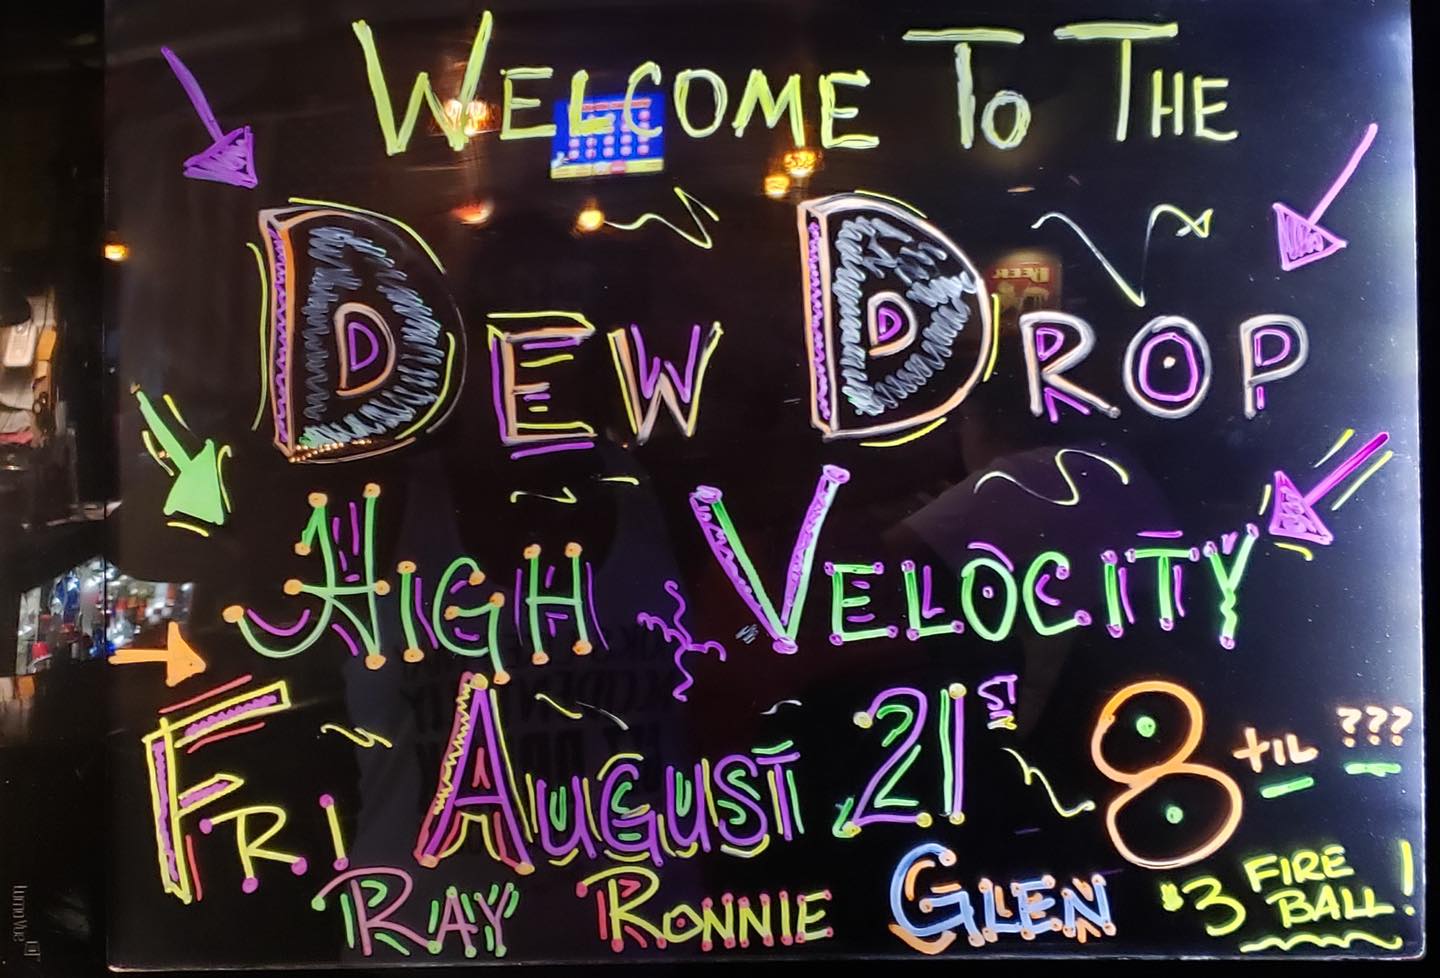 WELCOME TO THE
DEW DROP
HIGH VELOCITY
FRI AUGUST 21ST 8 TIL ???
RAY RONNIE GLEN $3 FIRE BALL!